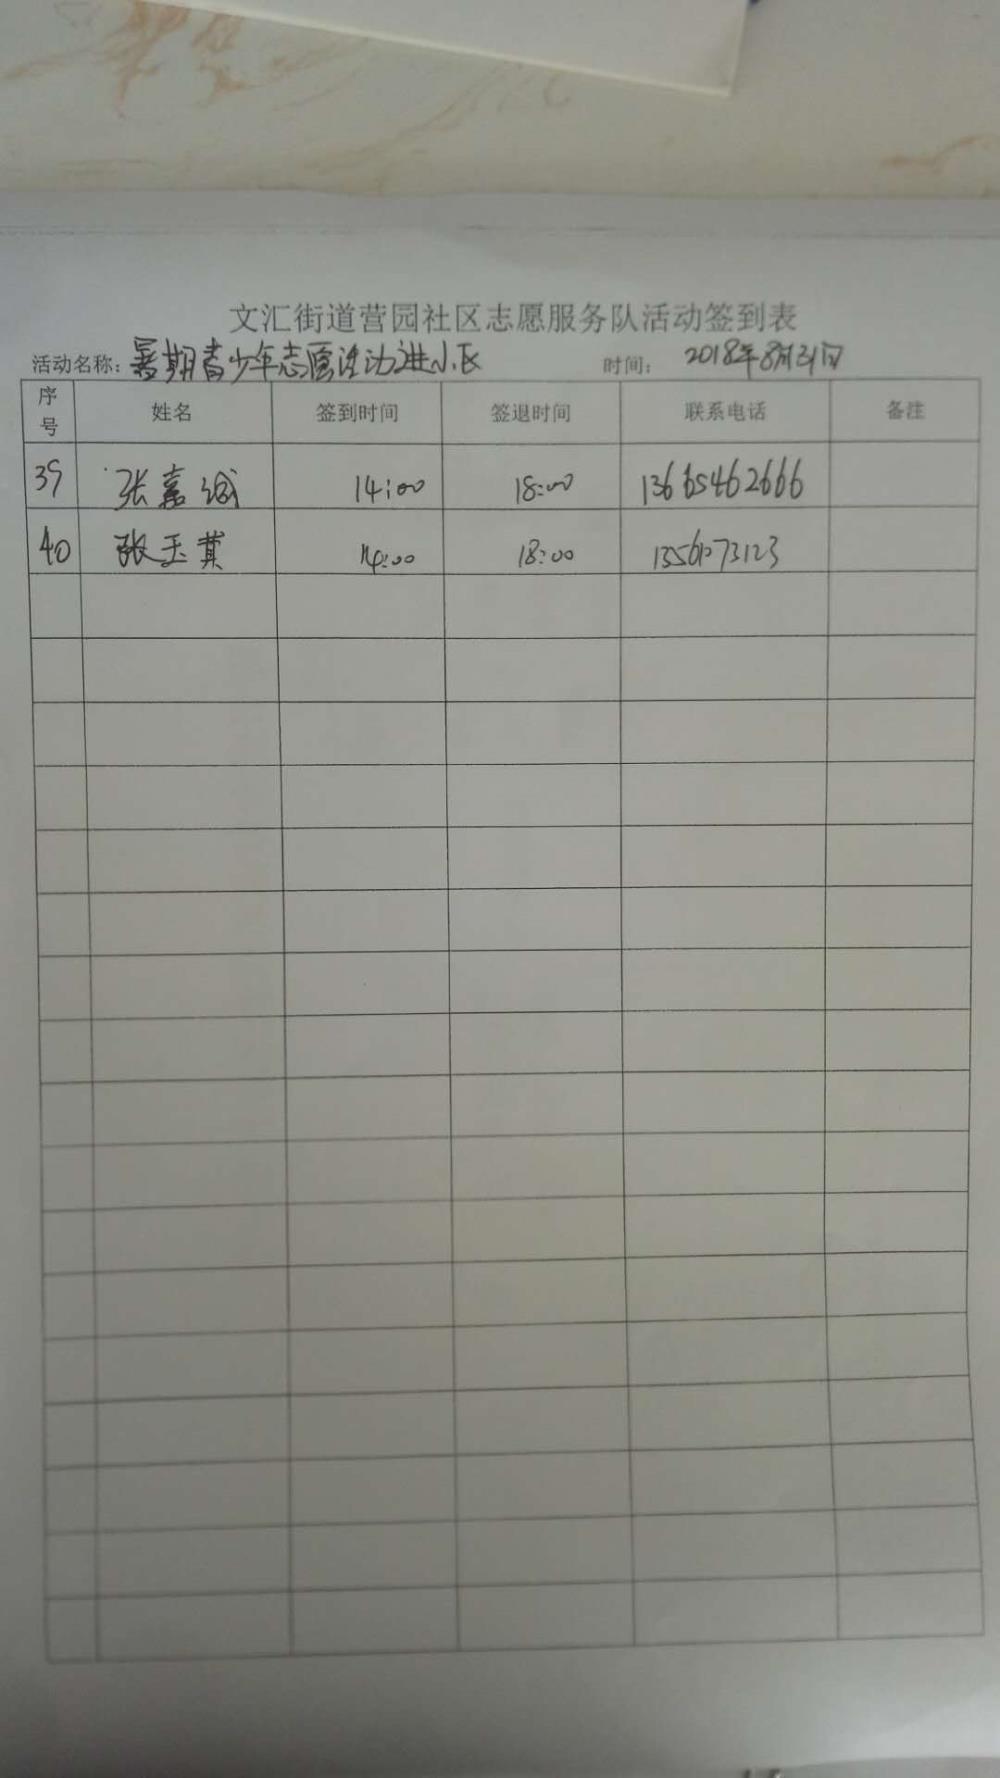 文汇街道营园社区志愿服务队活动签到表
活动名称：暑期青少年志愿活动进小区 时间：2018年8月31日
序号 姓名 签到时间 签退时间 联系电话 备注
39 张嘉诚 14:00 18:00 13665462666
40 张玉萁 14:00 18:00